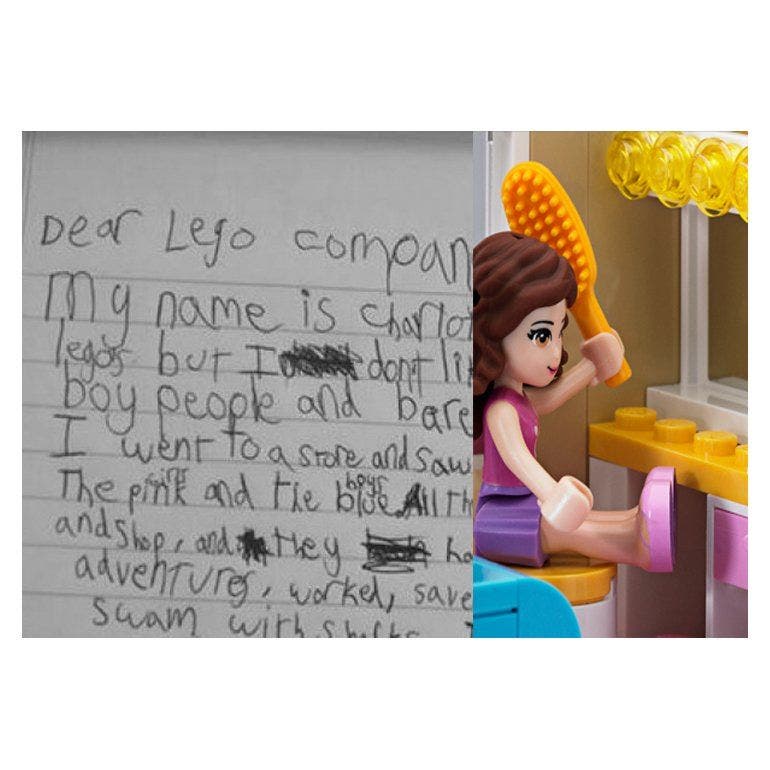 Dear Lego compan
My name is charlot
legos but I dont li
boy people and bare
I went to a store and saw
The pink girls and the blue boys. All th
and shop, and they ho
adventures, worked, save
swam with sharks